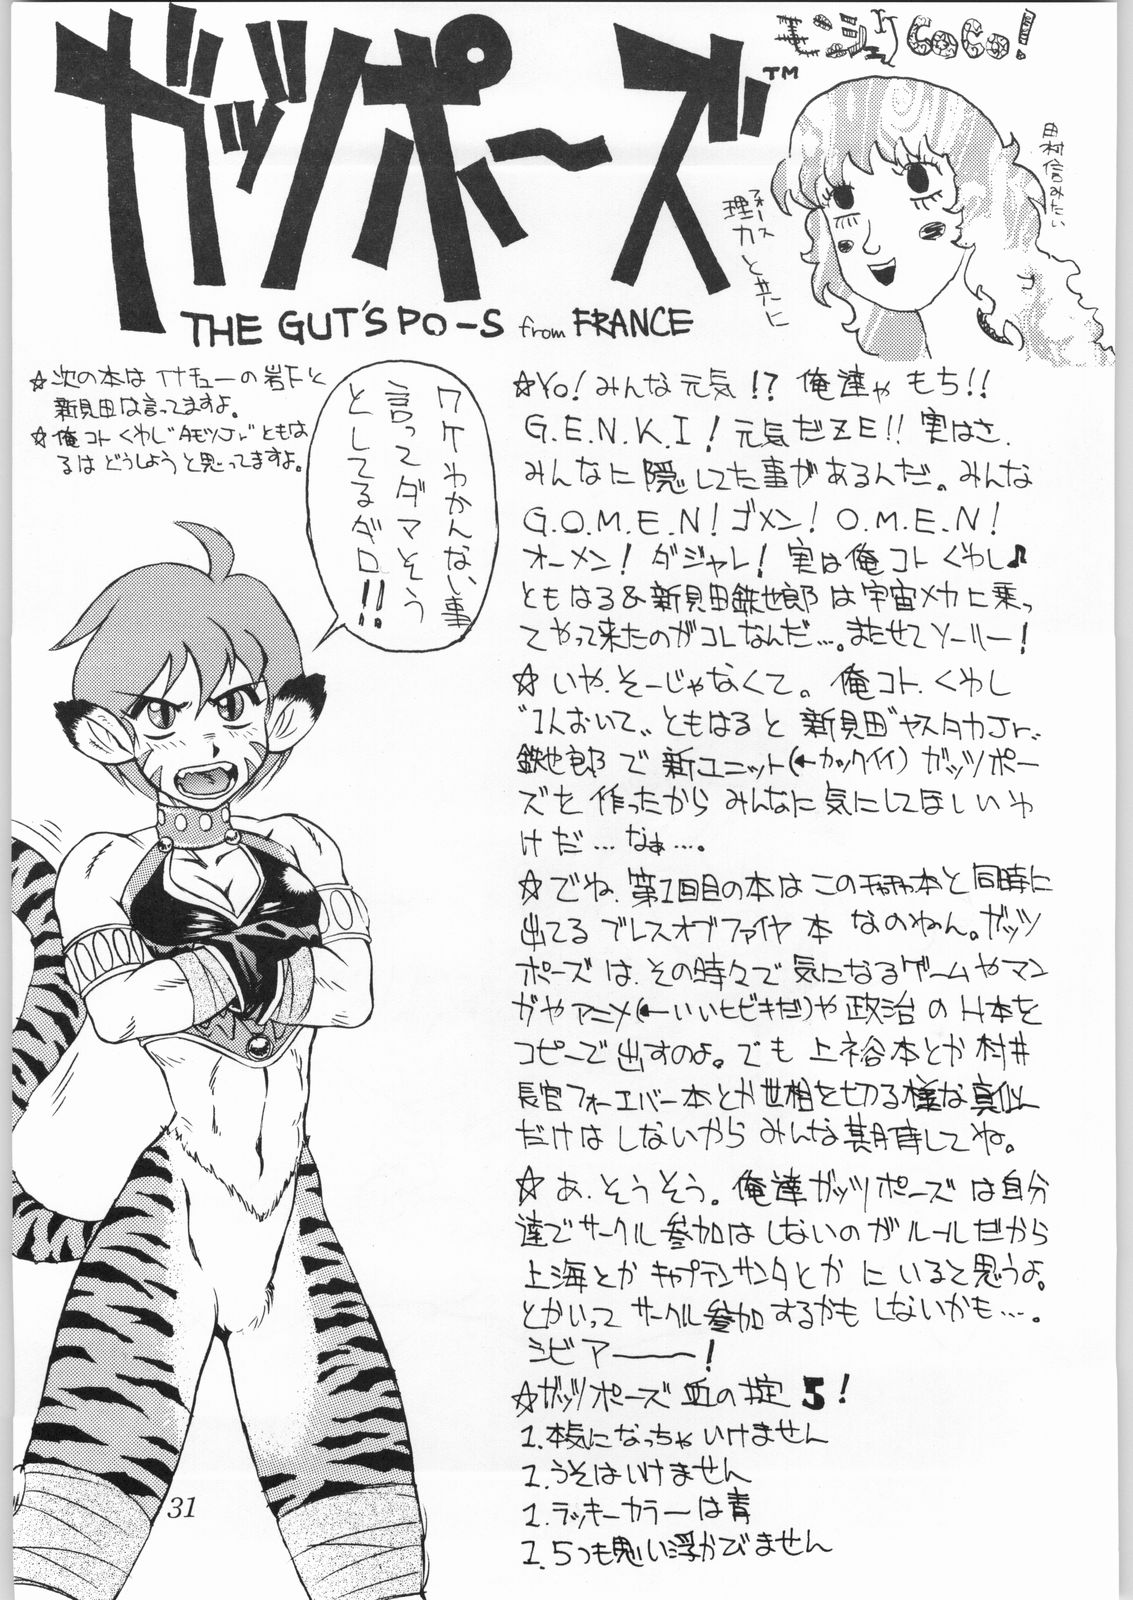 ガッツポ〜ズ
TM
モンシノケCoCo!
田村信みたい
フォースと共に
THE GUT'S PO-S from FRANCE
☆次の本はイナチューの岩下と
新見田は言ってますよ。
☆俺コトくわし"AモツJr"ともは
るはどうしようと思ってますよ。
ワケわかんない事
言ってダマそう
としてるダロ!!
☆Yo!みんな元気!?俺達ゃもち!!
G.E.N.K.I!元気だZE!!実はさ、
みんなに隠してた事があるんだ。みんな
G.O.M.E.N!ゴメン!O.M.E.N!
オーメン!ダジャレ!実は俺コトくわし♪
ともはる&新見田鉄也郎は宇宙メカに乗っ
てやって来たのがコレなんだ…。またせてソーリー!
☆いや、そーじゃなくて。俺コト、くわし
"1人おいて"ともはると新見田"ヤスタカJr."
鉄也郎で新ユニット(←カックイイ)ガッツポー
ズを作ったからみんなに気にしてほしいわ
けだ…なぁ…。
☆でね、第1回目の本はこの本と同時に
出てるブレスオブファイヤ本なのねん。ガッツ
ポーズは、その時々で気になるゲームやマン
ガやアニメ(←いいヒビキだ)や政治のH本を
コピーで出すのよ。でも上祐本とか村井
長官フォーエバー本とか世相を切る様な真似
だけはしないからみんな期待してね。
☆あ、そうそう。俺達ガッツポーズは自分
達でサークル参加はしないのがルールだから
上海とかキャプテンサンタとかにいると思うよ。
とかいってサークル参加するかもしないかも…。
シビアーーー!
☆ガッツポーズ血の掟5!
1.本気になっちゃいけません
2.うそはいけません
1.ラッキーカラーは青
2.5つも思い浮かびません
31